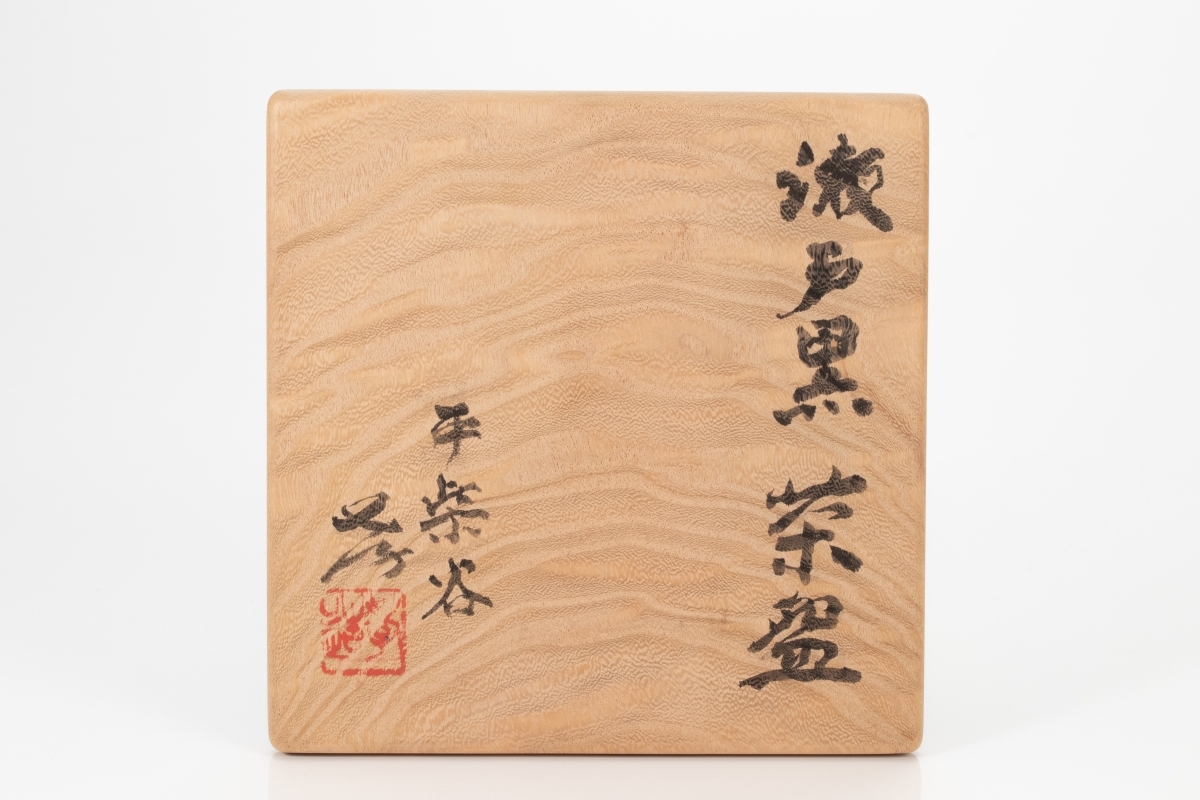 瀬戸黒 茶盌
平柴谷